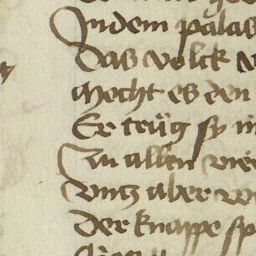 Indem palas
Das volck
Mocht es den
Er trüg sy in
Zu allen
Vntz aber
Der knappe sp